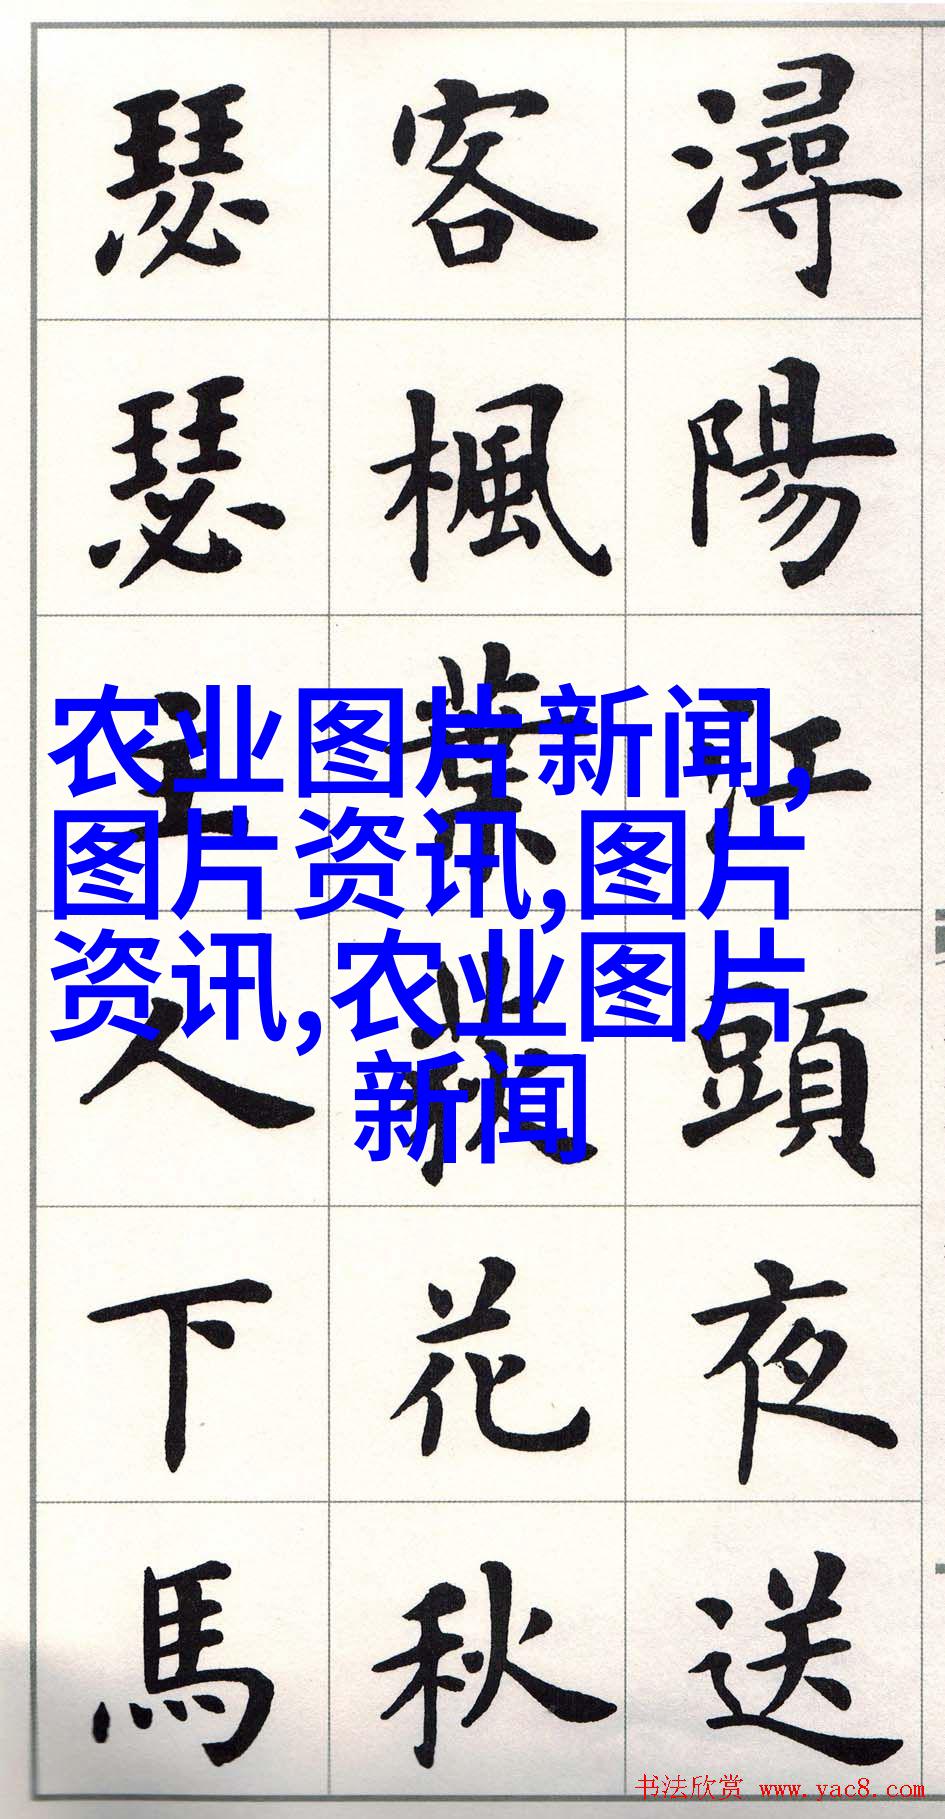 潯陽江頭夜送
客楓葉荻花秋
瑟瑟主人下馬
农业图片新闻,
图片资讯,图片
资讯,农业图片
新闻
书法欣赏 www.yac8.com